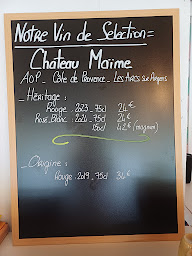 Notre Vin de Selection =
Chateau Maïme
AOP _ Côte de Provence _ Les Arcs sur Argens
_ Héritage :
Rouge 2023 _ 75cl 24€
Rosé _ Blanc 2024 _ 75cl 24€
150cl 42€ (magnum)
_ Origine :
Rouge 2019 _ 75cl 34€